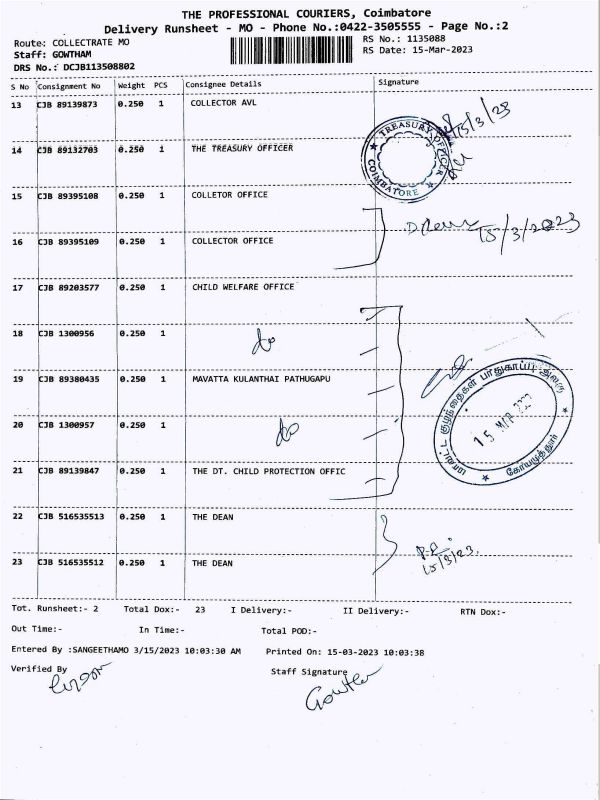 THE PROFESSIONAL COURIERS, Coimbatore
Delivery Runsheet - MO - Phone No.:0422-3505555 - Page No.:2
Route: COLLECTRATE MO
RS No.: 1135088
Staff: GOWTHAM
RS Date: 15-Mar-2023
DRS No.: DCJB113508802
S No Consignment No Weight PCS Consignee Details Signature
13 CJB 89139873 0.250 1 COLLECTOR AVL
15/3/23
14 CJB 89132703 0.250 1 THE TREASURY OFFICER
TREASURY OFFICER
COIMBATORE
15 CJB 89395108 0.250 1 COLLETOR OFFICE
15/3/2023
16 CJB 89395109 0.250 1 COLLECTOR OFFICE
17 CJB 89203577 0.250 1 CHILD WELFARE OFFICE
18 CJB 1300956 0.250 1 do
19 CJB 89380435 0.250 1 MAVATTA KULANTHAI PATHUGAPU
20 CJB 1300957 0.250 1 do
மாவட்ட குழந்தைகள் பாதுகாப்பு அலகு
15 MAR 2023
கோயமுத்தூர்
21 CJB 89139847 0.250 1 THE DT. CHILD PROTECTION OFFIC
22 CJB 516535513 0.250 1 THE DEAN
15/3/23.
23 CJB 516535512 0.250 1 THE DEAN
Tot. Runsheet:- 2 Total Dox:- 23 I Delivery:- II Delivery:- RTN Dox:-
Out Time:- In Time:- Total POD:-
Entered By :SANGEETHAMO 3/15/2023 10:03:30 AM Printed On: 15-03-2023 10:03:38
Verified By Staff Signature